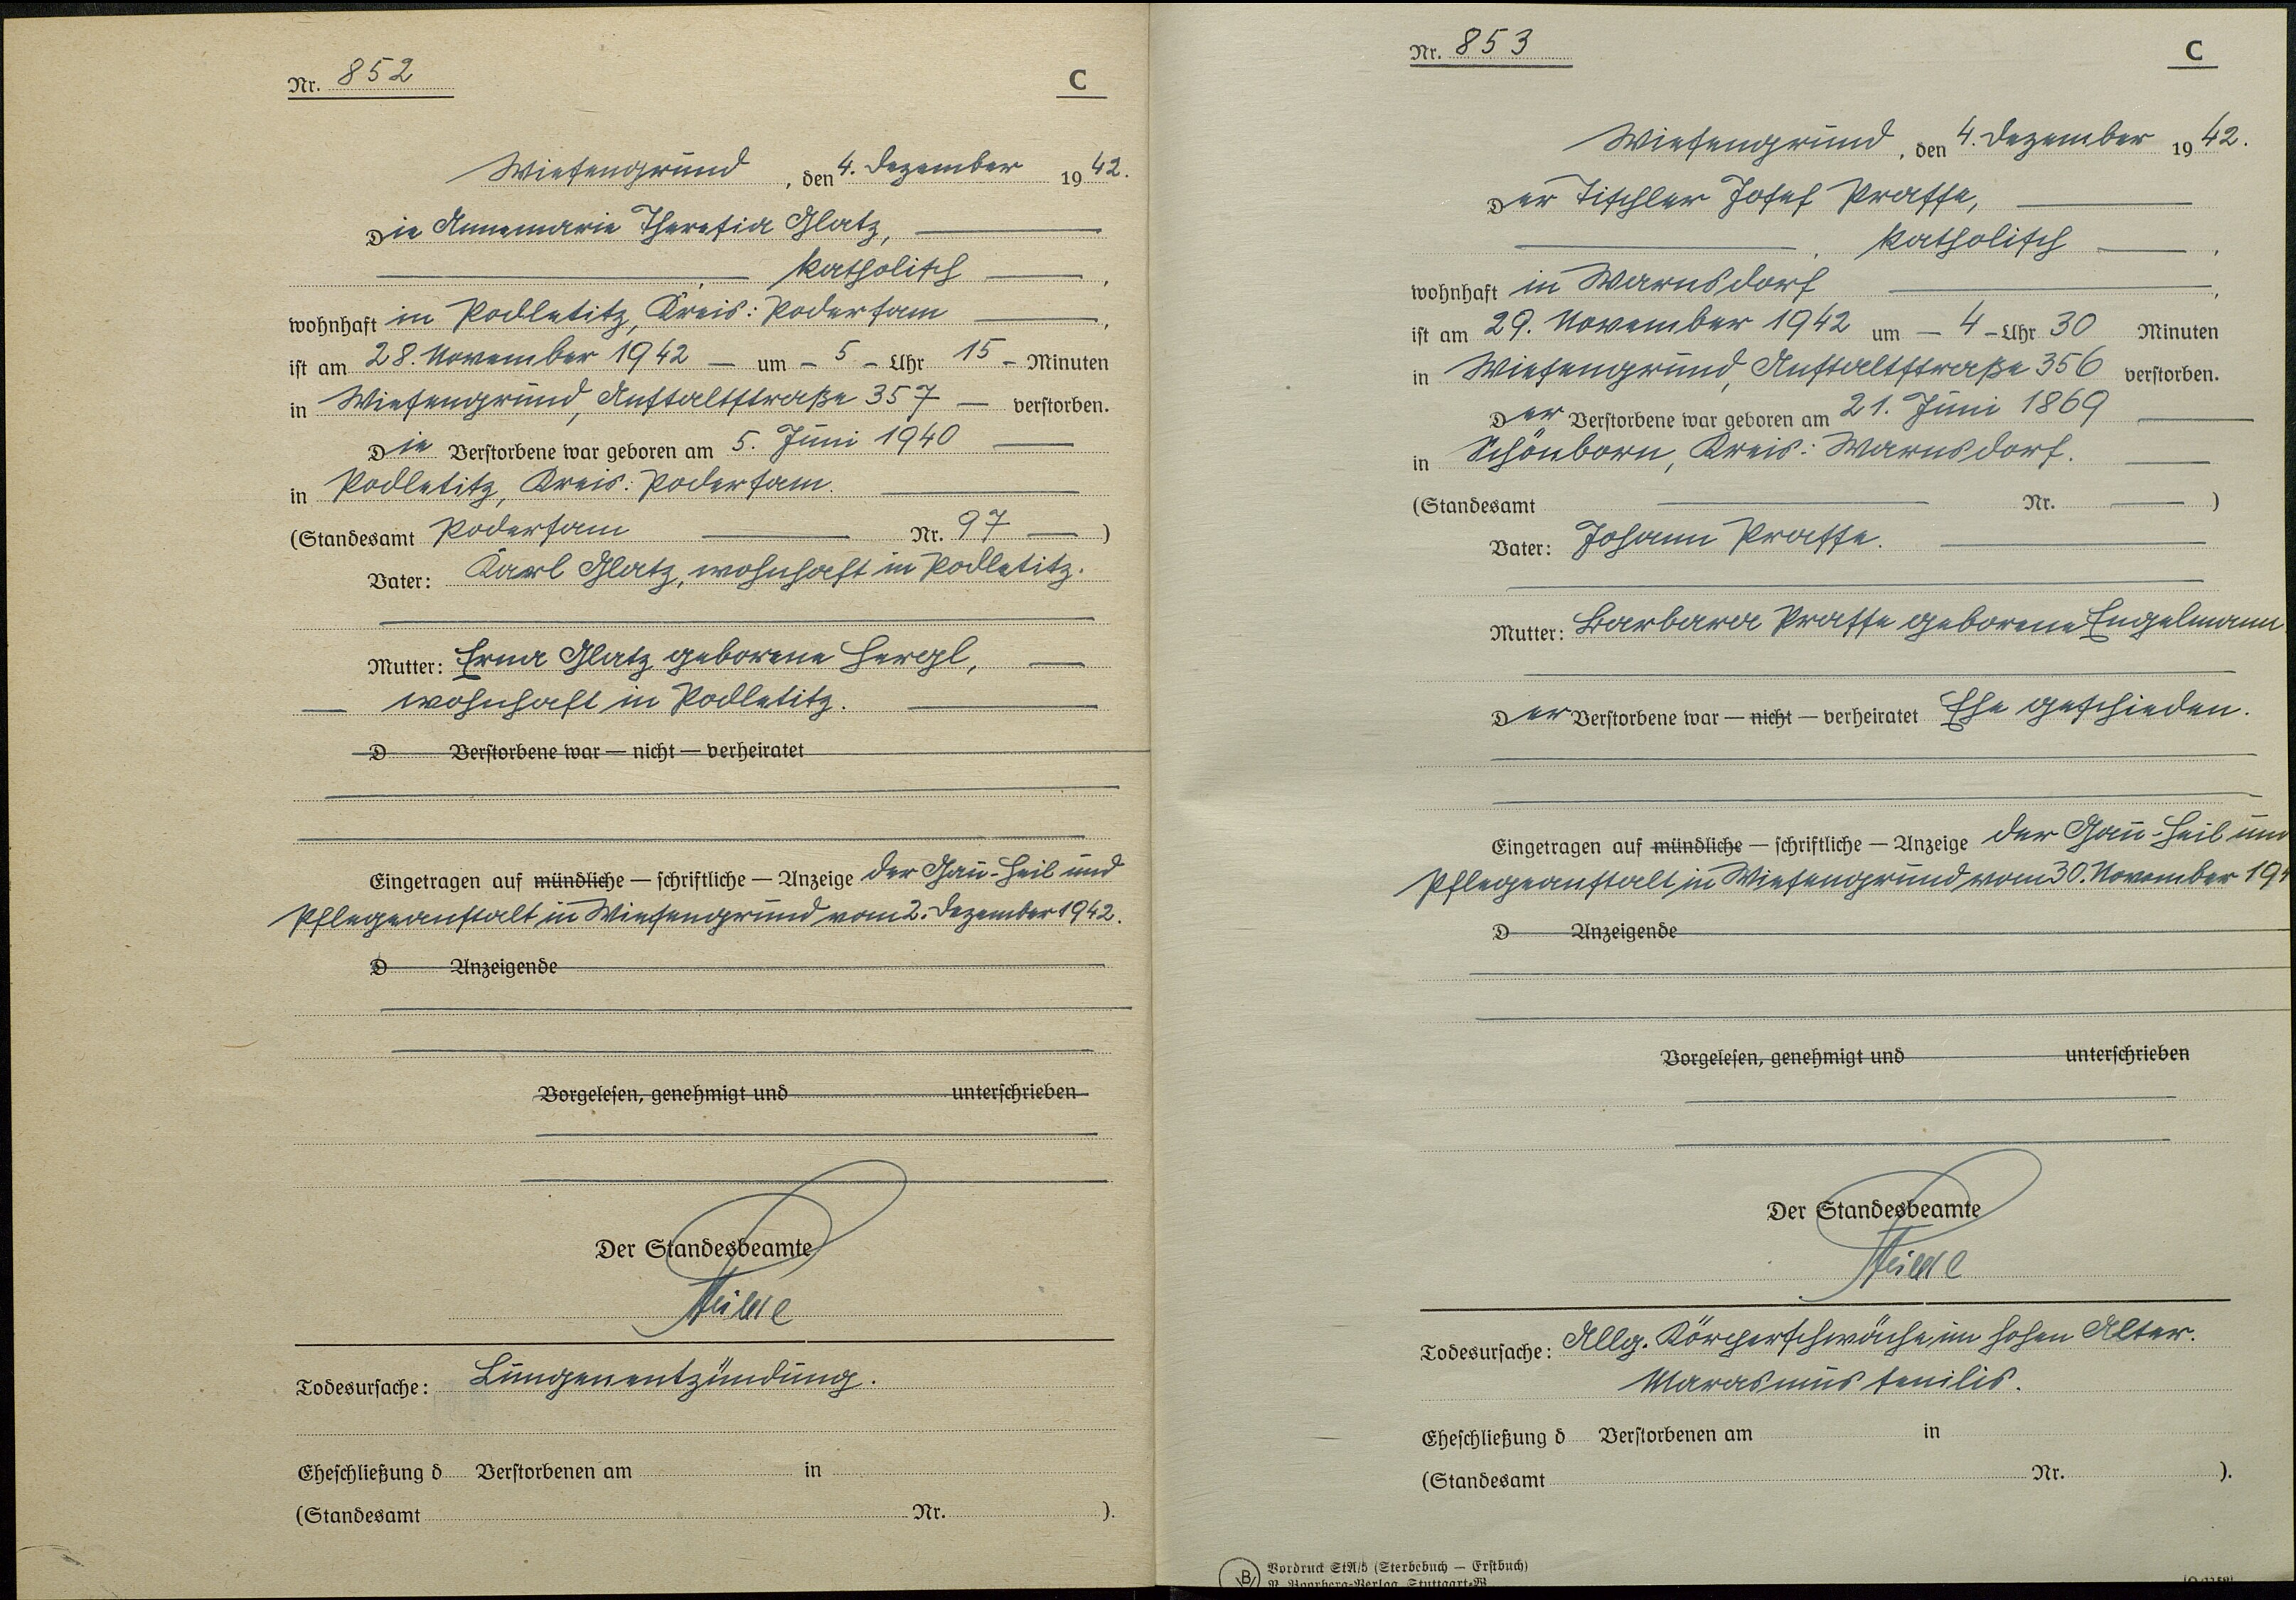 Nr. 852
C
Wiesengrund, den 4. Dezember 1942.
Die Annemarie Theresia Glatz,
katholisch,
wohnhaft in Podletitz, Kreis: Podersam,
ist am 28. November 1942 um 5 Uhr 15 Minuten
in Wiesengrund, Anstaltstraße 357 verstorben.
Die Verstorbene war geboren am 5. Juni 1940
in Podletitz, Kreis: Podersam.
(Standesamt Podersam Nr. 97)
Vater: Karl Glatz, wohnhaft in Podletitz.
Mutter: Erna Glatz geborene Hergl,
wohnhaft in Podletitz.
D Verstorbene war — nicht — verheiratet
Eingetragen auf mündliche — schriftliche — Anzeige der Gau-Heil und
Pflegeanstalt in Wiesengrund vom 2. Dezember 1942.
D Anzeigende
Vorgelesen, genehmigt und unterschrieben
Der Standesbeamte
Todesursache: Lungenentzündung.
Eheschließung d Verstorbenen am in
(Standesamt Nr. ).
Nr. 853
C
Wiesengrund, den 4. Dezember 1942.
Der Tischler Josef Prasse,
, katholisch,
wohnhaft in Warnsdorf,
ist am 29. November 1942 um 4 Uhr 30 Minuten
in Wiesengrund, Anstaltstraße 356 verstorben.
Der Verstorbene war geboren am 21. Juni 1869
in Schönborn, Kreis: Warnsdorf.
(Standesamt Nr. )
Vater: Johann Prasse.
Mutter: Barbara Prasse geborene Engelmann
Der Verstorbene war — nicht — verheiratet Ehe geschieden.
Eingetragen auf mündliche — schriftliche — Anzeige der Gau-Heil un
Pflegeanstalt in Wiesengrund vom 30. November 19
D Anzeigende
Vorgelesen, genehmigt und unterschrieben
Der Standesbeamte
Todesursache: Allg. Körperschwäche im hohen Alter.
Marasmus senilis.
Eheschließung d Verstorbenen am in
(Standesamt Nr. ).
B Vordruck StA/5 (Sterbebuch — Erstbuch)